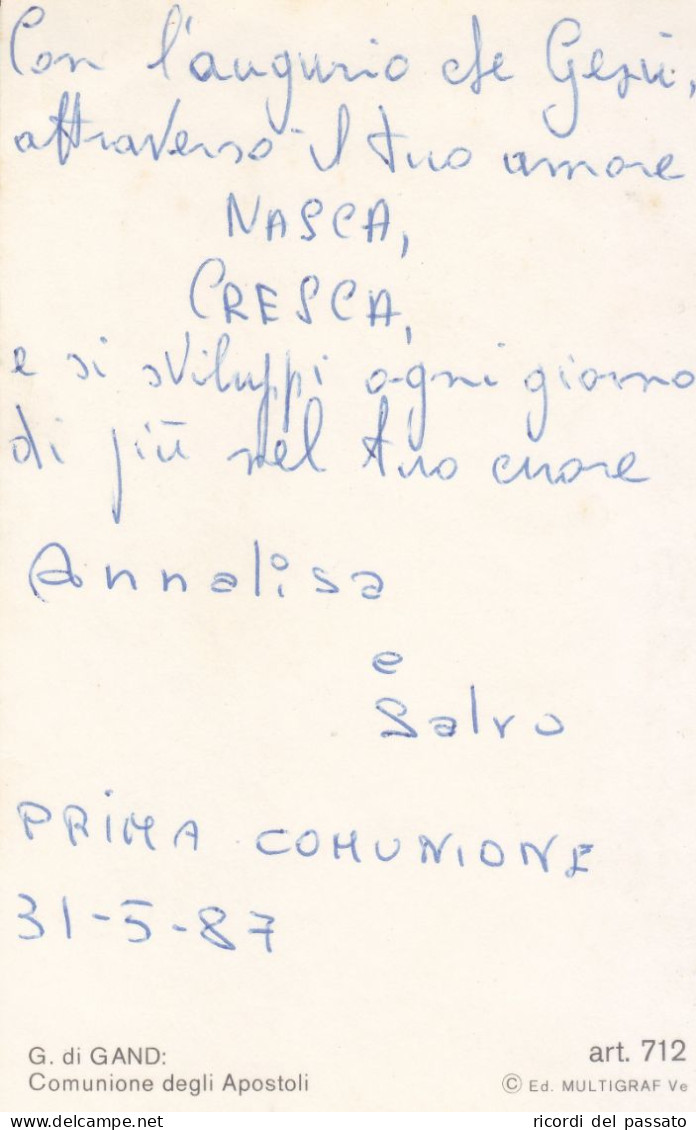 Con l'augurio che Gesù,
attraverso il tuo amore
NASCA,
CRESCA,
e si sviluppi ogni giorno
di più nel tuo cuore
Annalisa
e
Salvo
PRIMA COMUNIONE
31-5-87
G. di GAND: art. 712
Comunione degli Apostoli © Ed. MULTIGRAF Ve
delcampe.net ricordi del passato